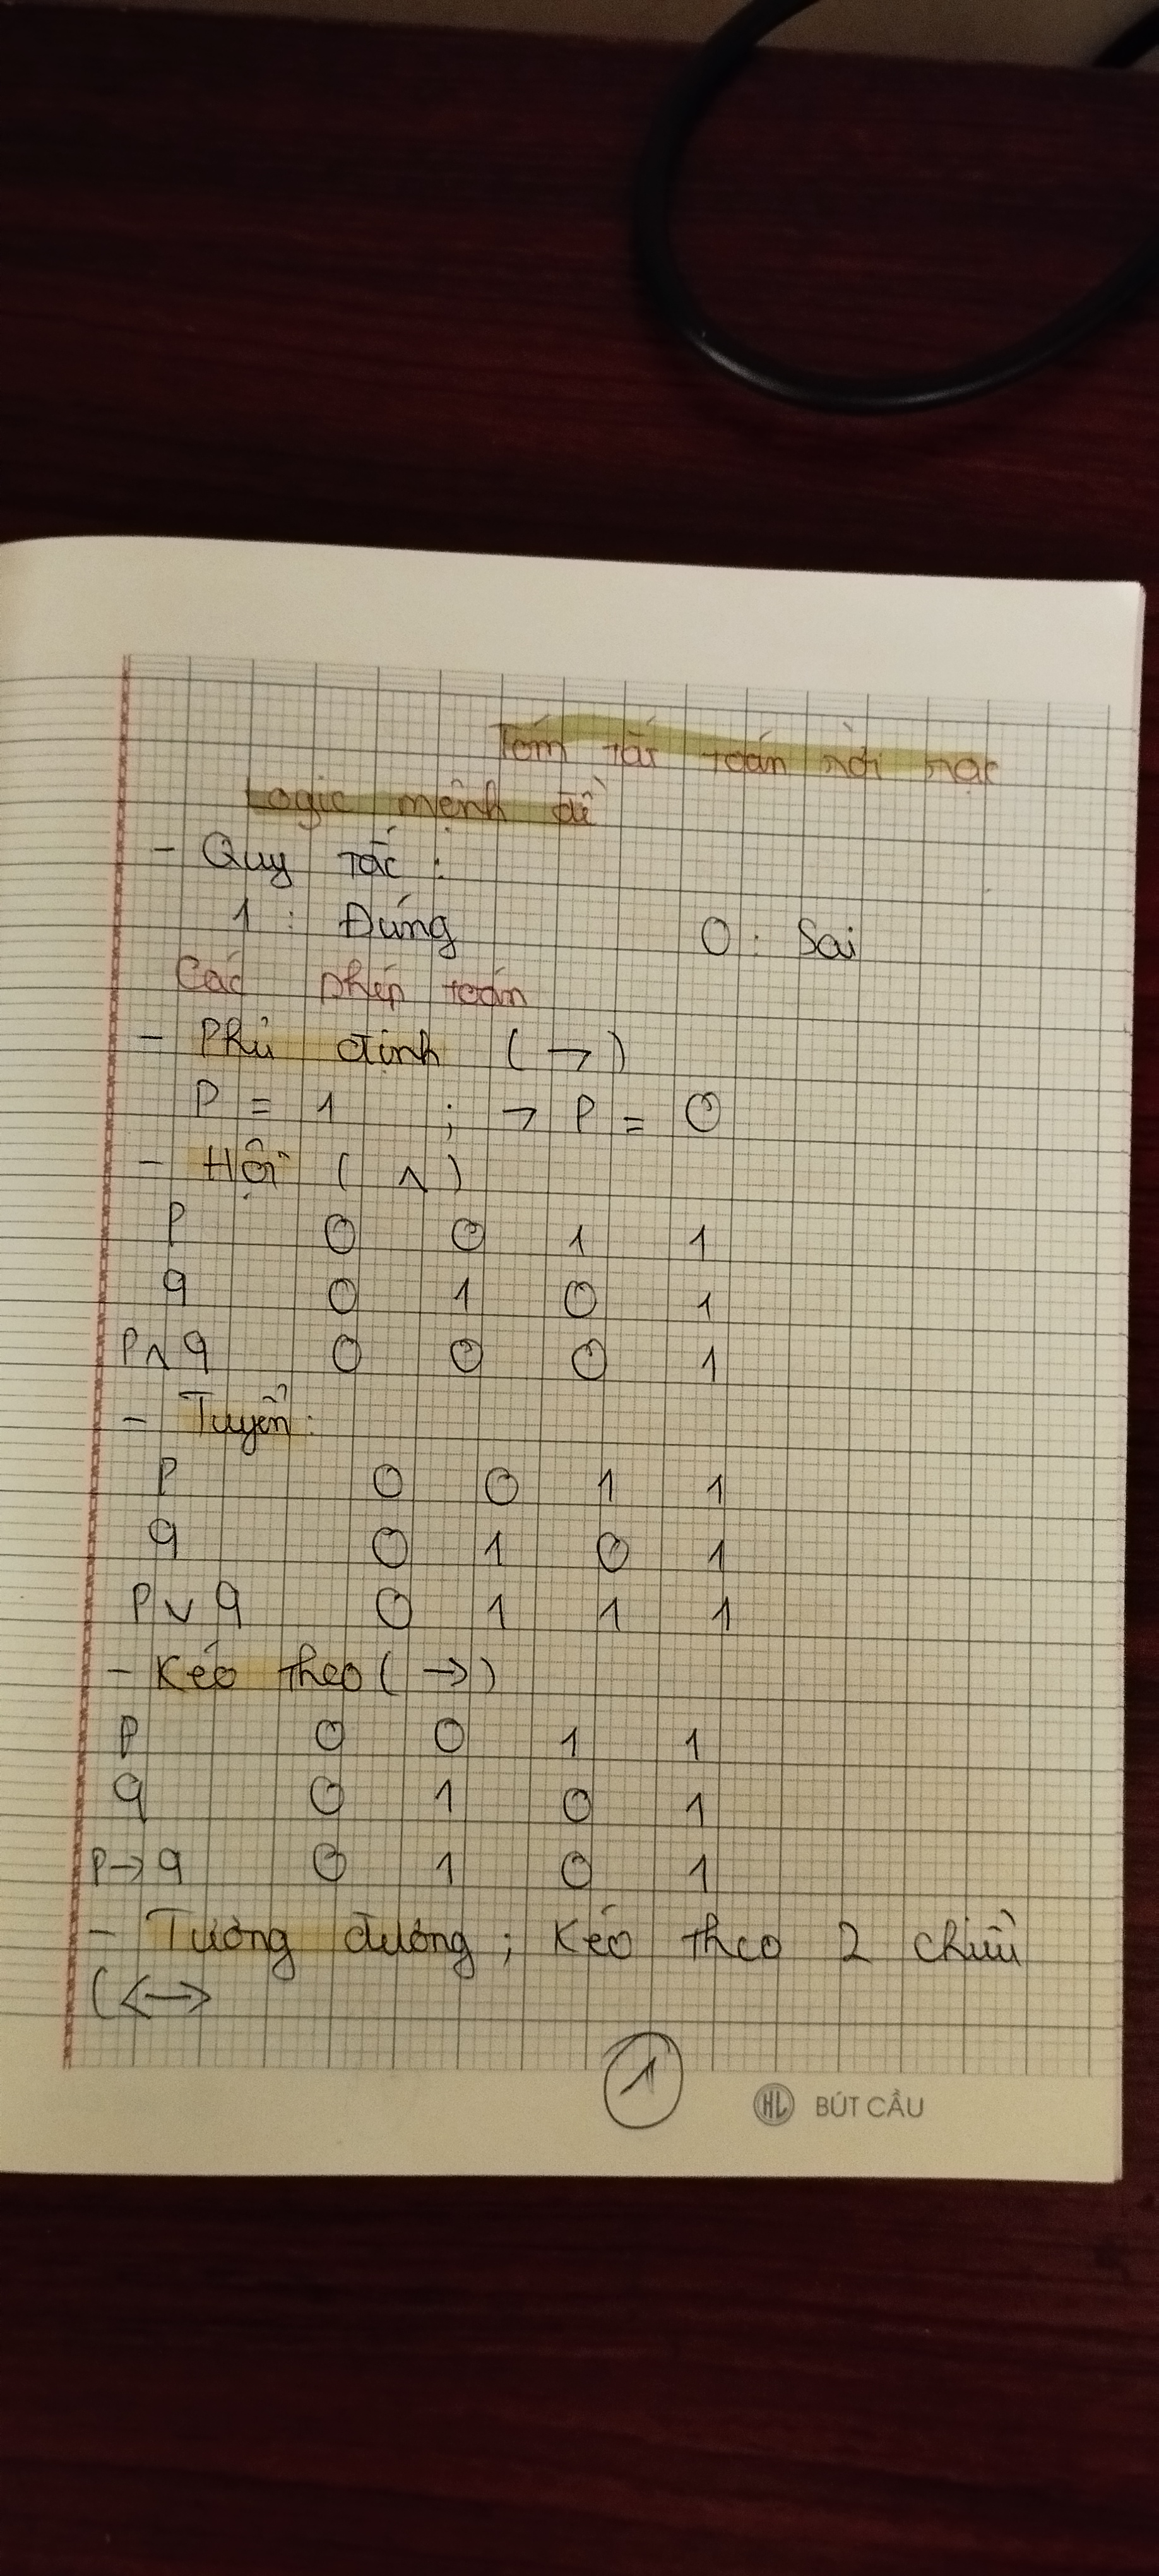 Tóm tắt toán rời rạc
Logic mệnh đề
- Quy tắc :
1 : Đúng 0 : Sai
Các phép toán
- Phủ định ( ¬ )
P = 1 ; ¬ P = 0
- Hội ( ∧ )
P 0 0 1 1
q 0 1 0 1
P ∧ q 0 0 0 1
- Tuyển :
P 0 0 1 1
q 0 1 0 1
P ∨ q 0 1 1 1
- Kéo theo ( → )
P 0 0 1 1
q 0 1 0 1
P → q 0 1 0 1
- Tương đương ; Kéo theo 2 chiều
( ↔
1
HL BÚT CẦU